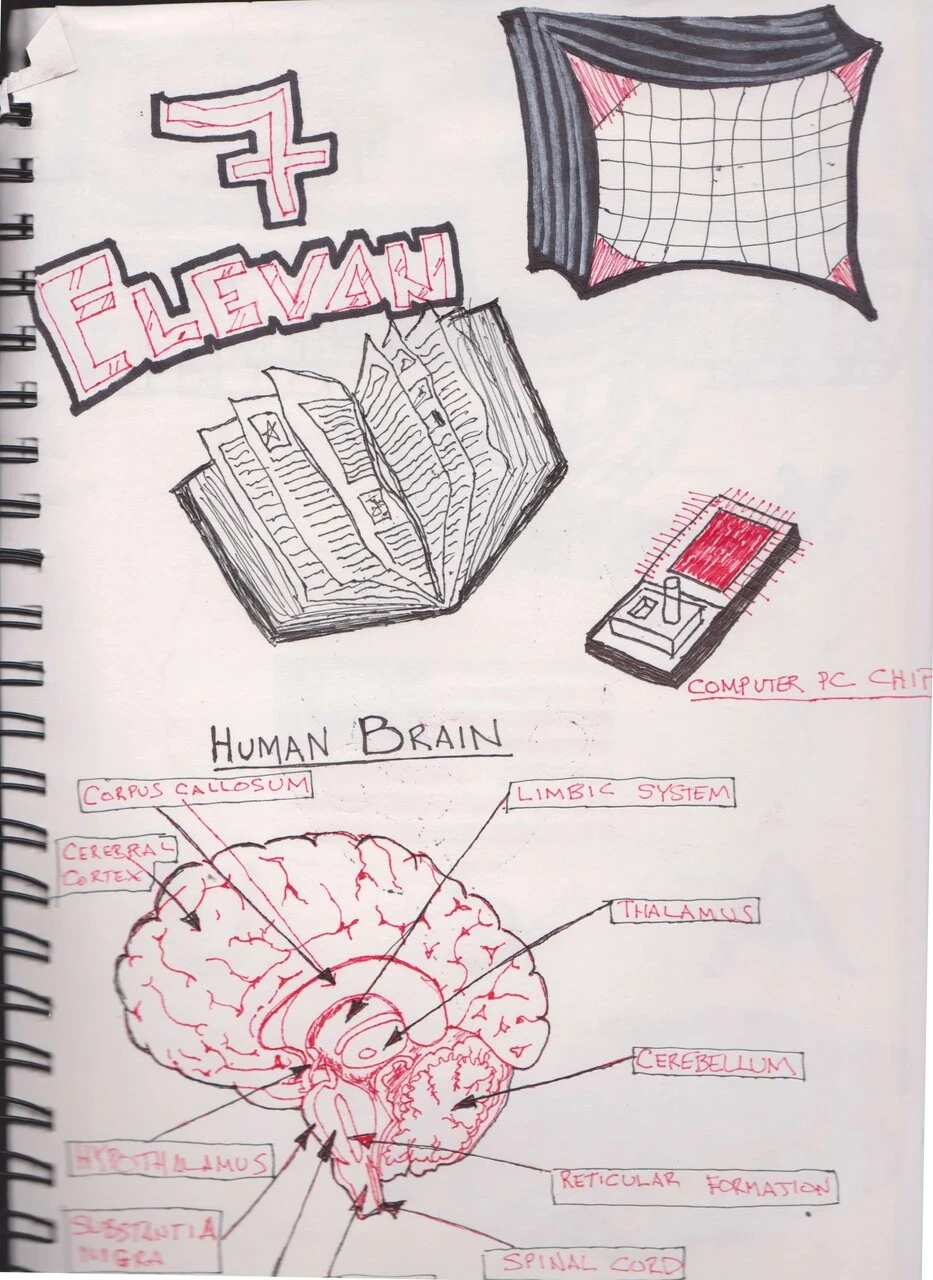 7
ELEVAN
COMPUTER PC CHIP
HUMAN BRAIN
CORPUS CALLOSUM
LIMBIC SYSTEM
CEREBRAL
CORTEX
THALAMUS
CEREBELLUM
HYPOTHALAMUS
RETICULAR FORMATION
SUBSTANTIA
NIGRA
SPINAL CORD